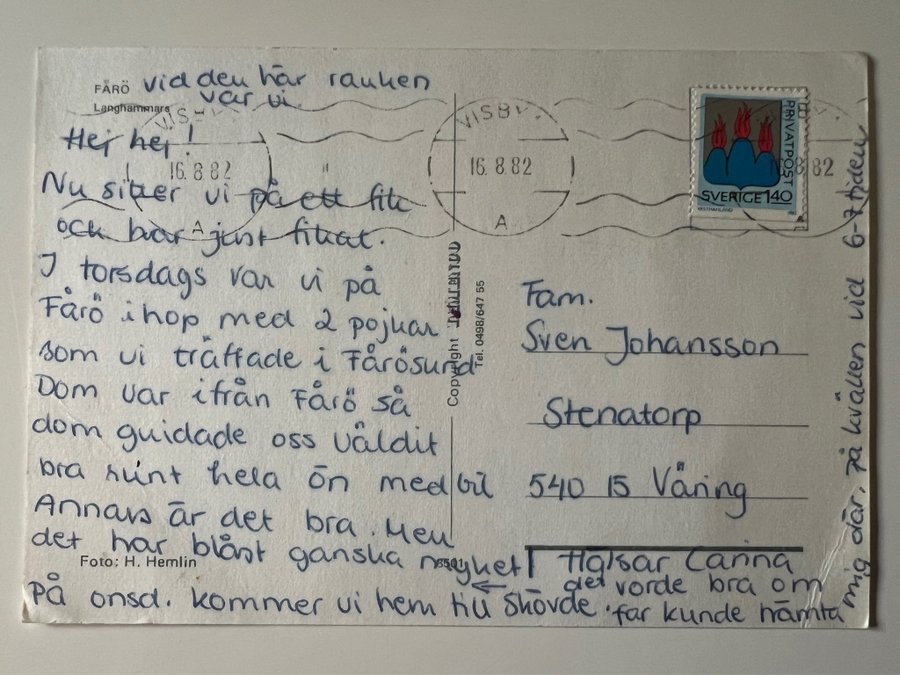 FÅRÖ vid den här rauken
Langhammars var vi
Hej hej!
Nu sitter vi på ett fik
och har just fikat.
I torsdags var vi på
Fårö ihop med 2 pojkar
som vi träffade i Fårösund
Dom var ifrån Fårö så
dom guidade oss väldit
bra runt hela ön med bil
Annars är det bra. Men
det har blåst ganska mycket
Foto: H. Hemlin
På onsd. kommer vi hem till Skövde.
VISBY
16.8.82
A
VISBY
16.8.82
A
8.82
PRIVATPOST
SVERIGE 140
Copyright
Tel. 0498/647 55
Fam.
Sven Johansson
Stenatorp
540 15 Våring
Hälsar Carina
det vorde bra om
far kunde hämta
mig där, på kvällen vid 6-7 tiden